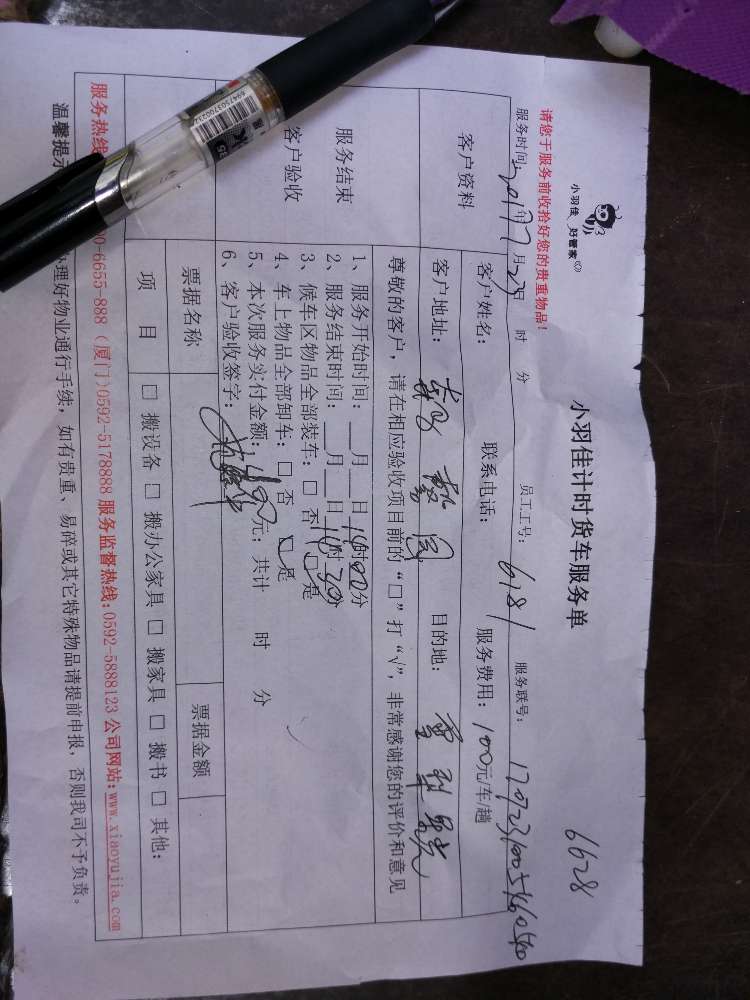 小羽佳 好管家
小羽佳计时货车服务单
6628
请您于服务前收拾好您的贵重物品!
服务时间: 2017年7月23日 时 分 员工工号: 6181 服务联号:
客户资料
客户姓名: 联系电话: 服务费用: 100元/车/趟
客户地址: 目的地:
尊敬的客户，请在相应验收项目前的“□”打“√”，非常感谢您的评价和意见
服务结束
客户验收
1、服务开始时间: __月__日14时00分
2、服务结束时间: __月__日14时30分
3、候车区物品全部装车: □ 否 □ 是
4、车上物品全部卸车: □ 否 □ 是
5、本次服务实付金额: 100元; 共计 时 分
6、客户验收签字:
票据名称 票据金额
项 目 □ 搬设备 □ 搬办公家具 □ 搬家具 □ 搬书 □ 其他:
服务热线 0-6655-888 (厦门)0592-5178888 服务监督热线:0592-5888123 公司网站:www.xiaoyujia.com
温馨提示 办理好物业通行手续，如有贵重、易碎或其它特殊物品请提前申报，否则我司不予负责。